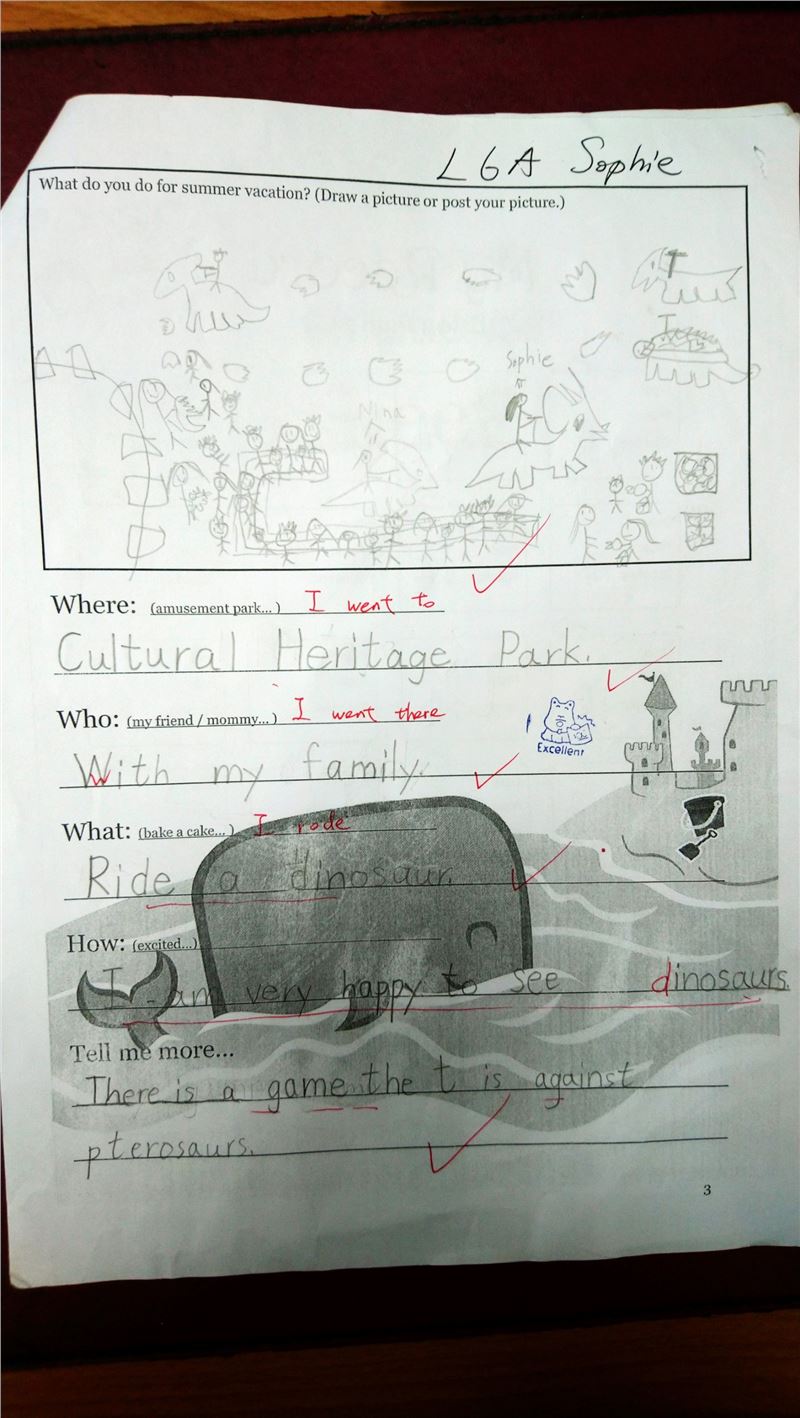 L6A Sophie
What do you do for summer vacation? (Draw a picture or post your picture.)
Sophie
Nina
Where: (amusement park... ) I went to
Cultural Heritage Park.
Who: (my friend / mommy... ) I went there
With my family.
Excellent
What: (bake a cake... ) I rode
Ride a dinosaur.
How: (excited...)
I am very happy to see dinosaurs.
Tell me more...
There is a game the t is against
pterosaurs.
3